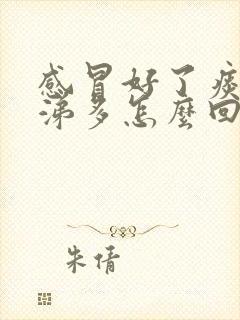 感冒好了痰
涕多怎麼回
朱倩